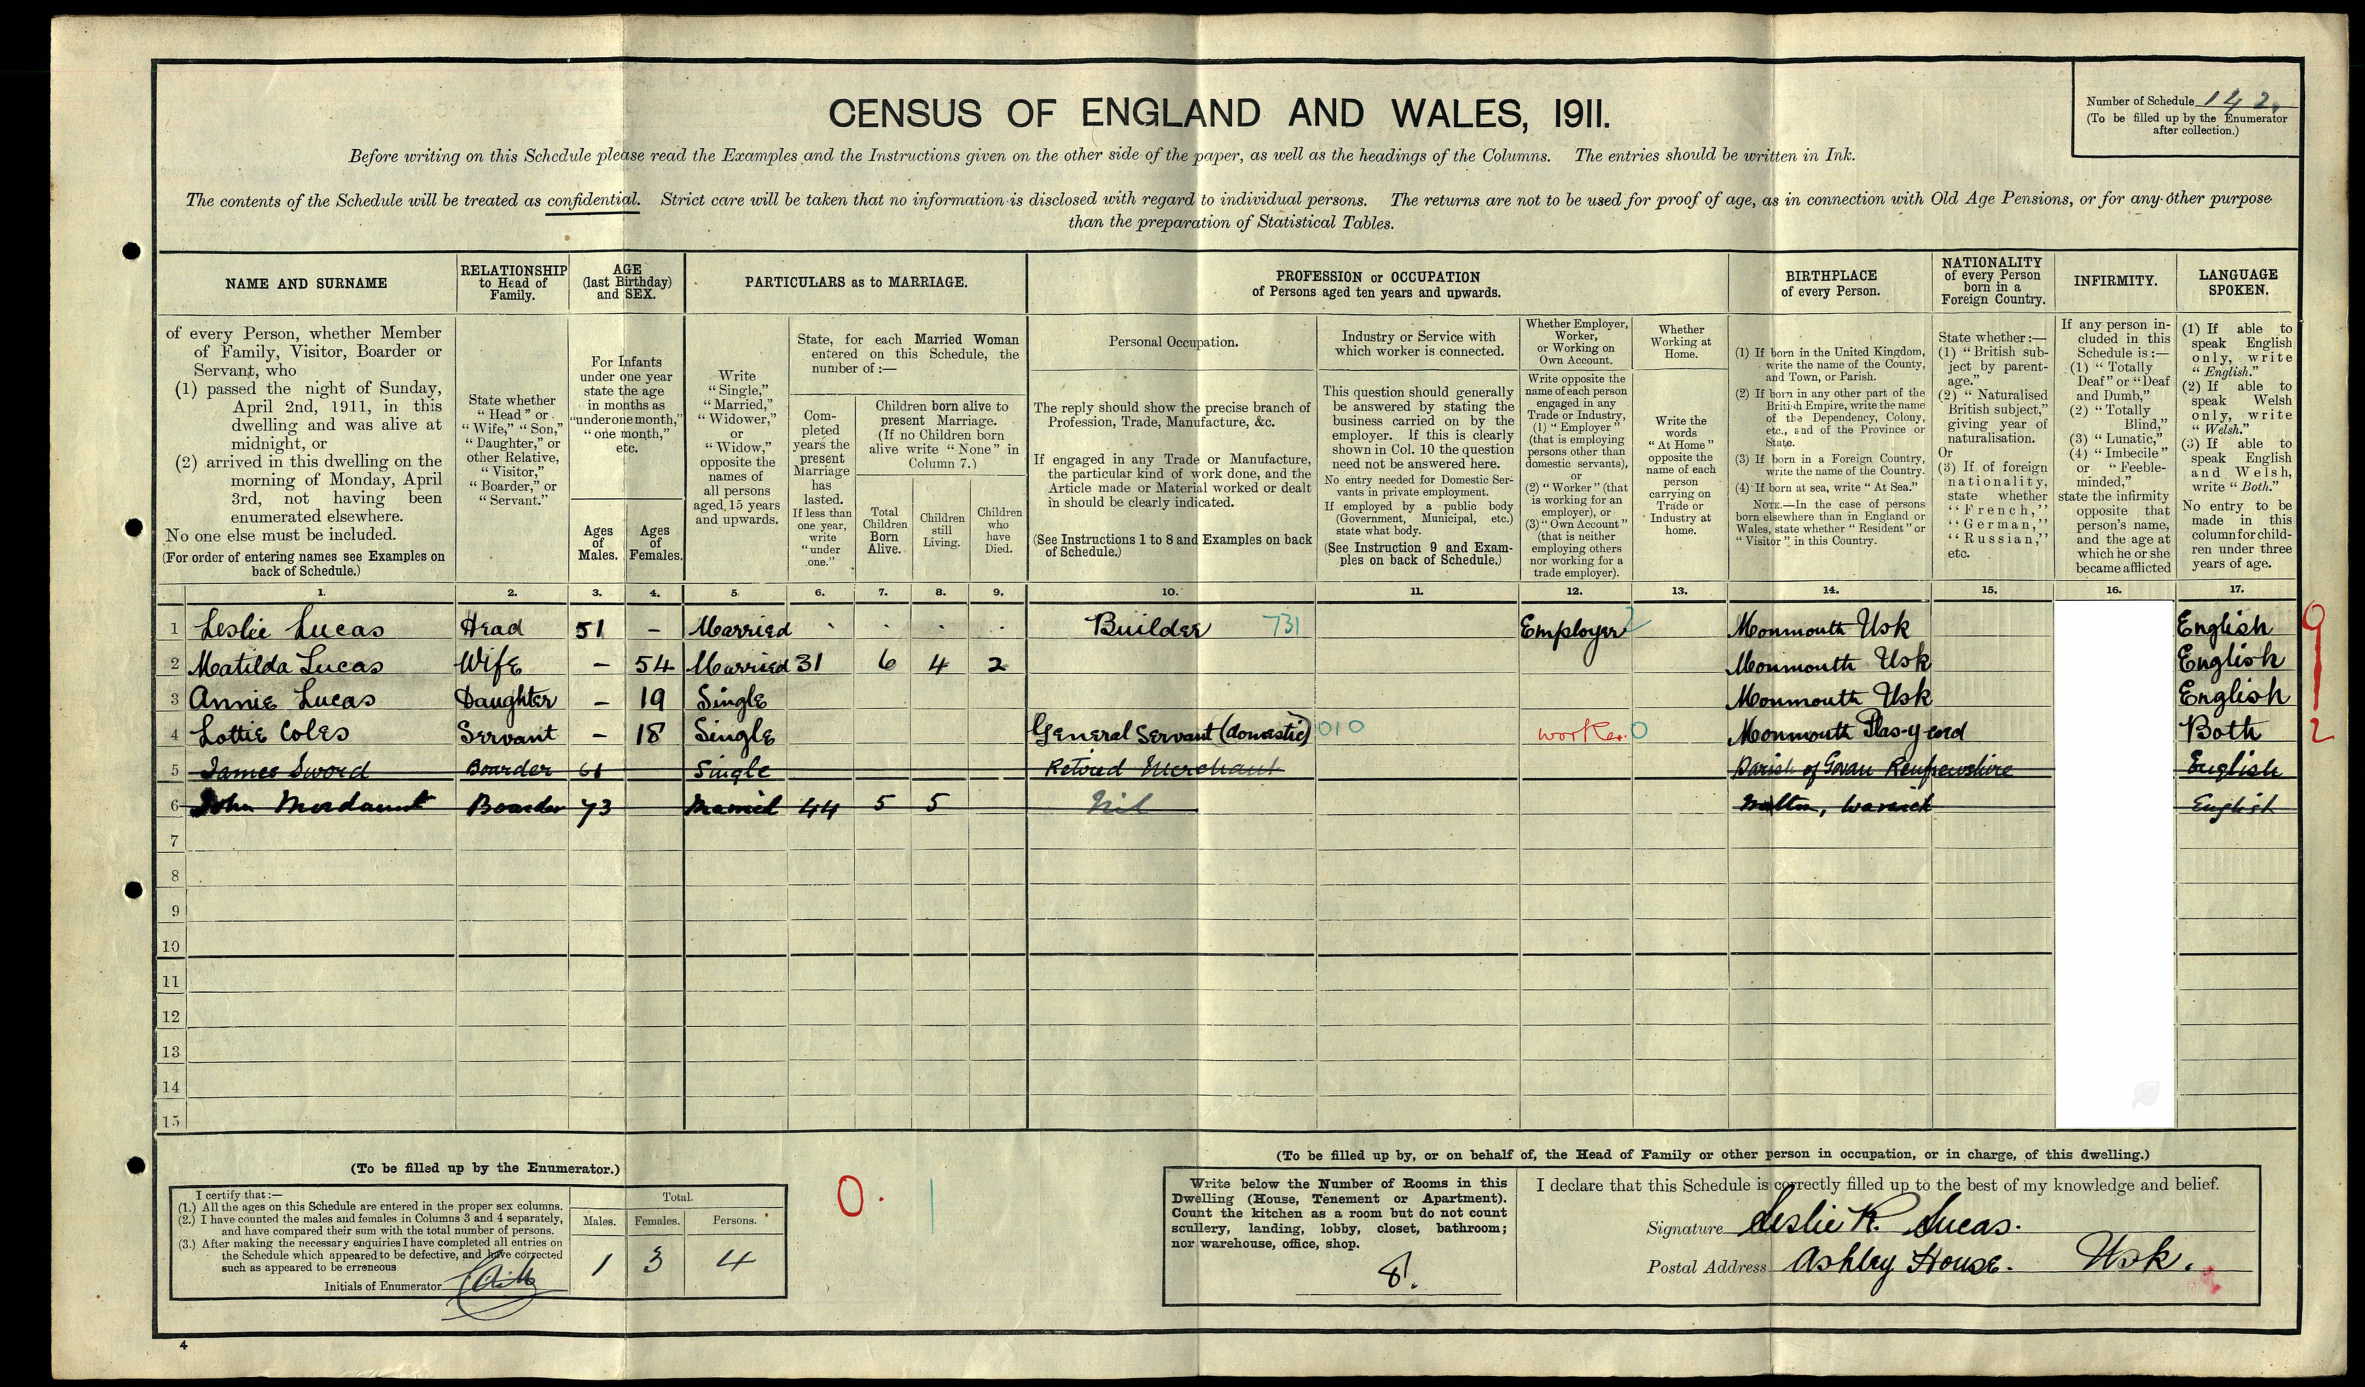 Number of Schedule 142.
(To be filled up by the Enumerator
after collection.)
CENSUS OF ENGLAND AND WALES, 1911.
Before writing on this Schedule please read the Examples and the Instructions given on the other side of the paper, as well as the headings of the Columns. The entries should be written in Ink.
The contents of the Schedule will be treated as confidential. Strict care will be taken that no information is disclosed with regard to individual persons. The returns are not to be used for proof of age, as in connection with Old Age Pensions, or for any other purpose
than the preparation of Statistical Tables.
NAME AND SURNAME
RELATIONSHIP
to Head of
Family.
AGE
(last Birthday)
and SEX.
PARTICULARS as to MARRIAGE.
PROFESSION or OCCUPATION
of Persons aged ten years and upwards.
BIRTHPLACE
of every Person.
NATIONALITY
of every Person
born in a
Foreign Country.
INFIRMITY.
LANGUAGE
SPOKEN.
of every Person, whether Member
of Family, Visitor, Boarder or
Servant, who
(1) passed the night of Sunday,
April 2nd, 1911, in this
dwelling and was alive at
midnight, or
(2) arrived in this dwelling on the
morning of Monday, April
3rd, not having been
enumerated elsewhere.
No one else must be included.
(For order of entering names see Examples on
back of Schedule.)
State whether
"Head" or
"Wife," "Son,"
"Daughter," or
other Relative,
"Visitor,"
"Boarder," or
"Servant."
For Infants
under one year
state the age
in months as
"under one month,"
"one month,"
etc.
Ages
of
Males.
Ages
of
Females.
Write
"Single,"
"Married,"
"Widower,"
or
"Widow,"
opposite the
names of
all persons
aged 15 years
and upwards.
State, for each Married Woman
entered on this Schedule, the
number of :—
Com-
pleted
years the
present
Marriage
has
lasted.
If less than
one year,
write
"under
one."
Children born alive to
present Marriage.
(If no Children born
alive write "None" in
Column 7.)
Total
Children
Born
Alive.
Children
still
Living.
Children
who
have
Died.
Personal Occupation.
The reply should show the precise branch of
Profession, Trade, Manufacture, &c.
If engaged in any Trade or Manufacture,
the particular kind of work done, and the
Article made or Material worked or dealt
in should be clearly indicated.
(See Instructions 1 to 8 and Examples on back
of Schedule.)
Industry or Service with
which worker is connected.
This question should generally
be answered by stating the
business carried on by the
employer. If this is clearly
shown in Col. 10 the question
need not be answered here.
No entry needed for Domestic Ser-
vants in private employment.
If employed by a public body
(Government, Municipal, etc.)
state what body.
(See Instruction 9 and Exam-
ples on back of Schedule.)
Whether Employer,
Worker,
or Working on
Own Account.
Write opposite the
name of each person
engaged in any
Trade or Industry,
(1) "Employer"
(that is employing
persons other than
domestic servants),
or
(2) "Worker" (that
is working for an
employer), or
(3) "Own Account"
(that is neither
employing others
nor working for a
trade employer).
Whether
Working at
Home.
Write the
words
"At Home"
opposite the
name of each
person
carrying on
Trade or
Industry at
home.
(1) If born in the United Kingdom,
write the name of the County,
and Town, or Parish.
(2) If born in any other part of the
British Empire, write the name
of the Dependency, Colony,
etc., and of the Province or
State.
(3) If born in a Foreign Country,
write the name of the Country.
(4) If born at sea, write "At Sea."
NOTE.—In the case of persons
born elsewhere than in England or
Wales, state whether "Resident" or
"Visitor" in this Country.
State whether :—
(1) "British sub-
ject by parent-
age."
(2) "Naturalised
British subject,"
giving year of
naturalisation.
Or
(3) If of foreign
nationality,
state whether
"French,"
"German,"
"Russian,"
etc.
If any person in-
cluded in this
Schedule is :—
(1) "Totally
Deaf" or "Deaf
and Dumb,"
(2) "Totally
Blind,"
(3) "Lunatic,"
(4) "Imbecile"
or "Feeble-
minded,"
state the infirmity
opposite that
person's name,
and the age at
which he or she
became afflicted
(1) If able to
speak English
only, write
"English."
(2) If able to
speak Welsh
only, write
"Welsh."
(3) If able to
speak English
and Welsh,
write "Both."
No entry to be
made in this
column for child-
ren under three
years of age.
1. 2. 3. 4. 5. 6. 7. 8. 9. 10. 11. 12. 13. 14. 15. 16. 17.
1 Leslie Lucas Head 51 – Married Builder 731 Employer 2 Monmouth Usk English 9
2 Matilda Lucas Wife – 54 Married 31 6 4 2 Monmouth Usk English
3 Annie Lucas Daughter – 19 Single Monmouth Usk English
4 Lottie Coles Servant – 18 Single General Servant (domestic) 010 worker. 0 Monmouth Plas-y-coed Both 2
5 James Sword Boarder 61 Single Retired Merchant Parish of Govan Renfrewshire English
6 John Mordaunt Boarder 73 Married 44 5 5 Nil Walton, Warwick English
7
8
9
10
11
12
13
14
15
(To be filled up by the Enumerator.)
I certify that :—
(1.) All the ages on this Schedule are entered in the proper sex columns.
(2.) I have counted the males and females in Columns 3 and 4 separately,
and have compared their sum with the total number of persons.
(3.) After making the necessary enquiries I have completed all entries on
the Schedule which appeared to be defective, and have corrected
such as appeared to be erroneous
Initials of Enumerator
Total.
Males. Females. Persons.
1 3 4
0. 1
(To be filled up by, or on behalf of, the Head of Family or other person in occupation, or in charge, of this dwelling.)
Write below the Number of Rooms in this
Dwelling (House, Tenement or Apartment).
Count the kitchen as a room but do not count
scullery, landing, lobby, closet, bathroom;
nor warehouse, office, shop.
8.
I declare that this Schedule is correctly filled up to the best of my knowledge and belief.
Signature Leslie R. Lucas.
Postal Address Ashley House. Usk.
4